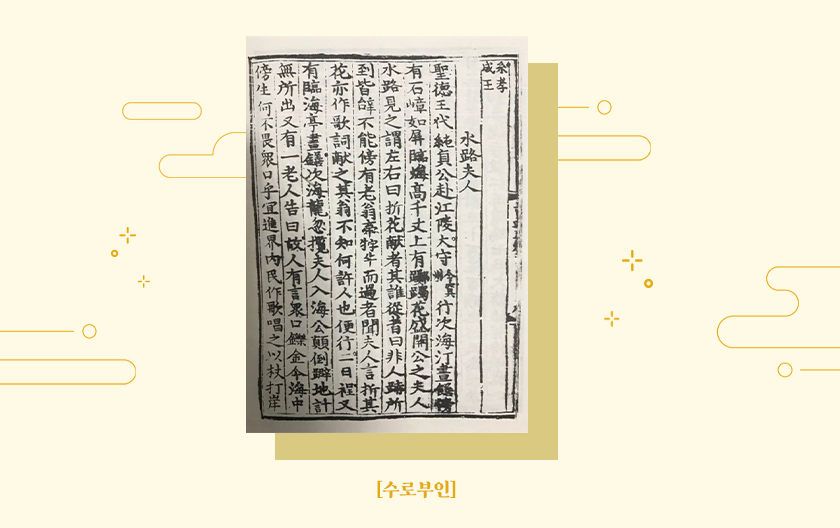 孝
成王
水路夫人
聖德王代純貞公赴江陵大守今冥州行次海汀晝饍傍
有石嶂如屏臨海高千丈上有躑躅花盛開公之夫人
水路見之謂左右曰折花献者其誰從者曰非人跡所
到皆辭不能傍有老翁牽牸牛而過者聞夫人言折其
花亦作歌詞献之其翁不知何許人也便行二日程又
有臨海亭晝饍次海龍忽攬夫人入海公顛倒躃地計
無所出又有一老人告曰故人有言衆口鑠金今海中
傍生何不畏衆口乎宜進界內民作歌唱之以杖打岸
[수로부인]